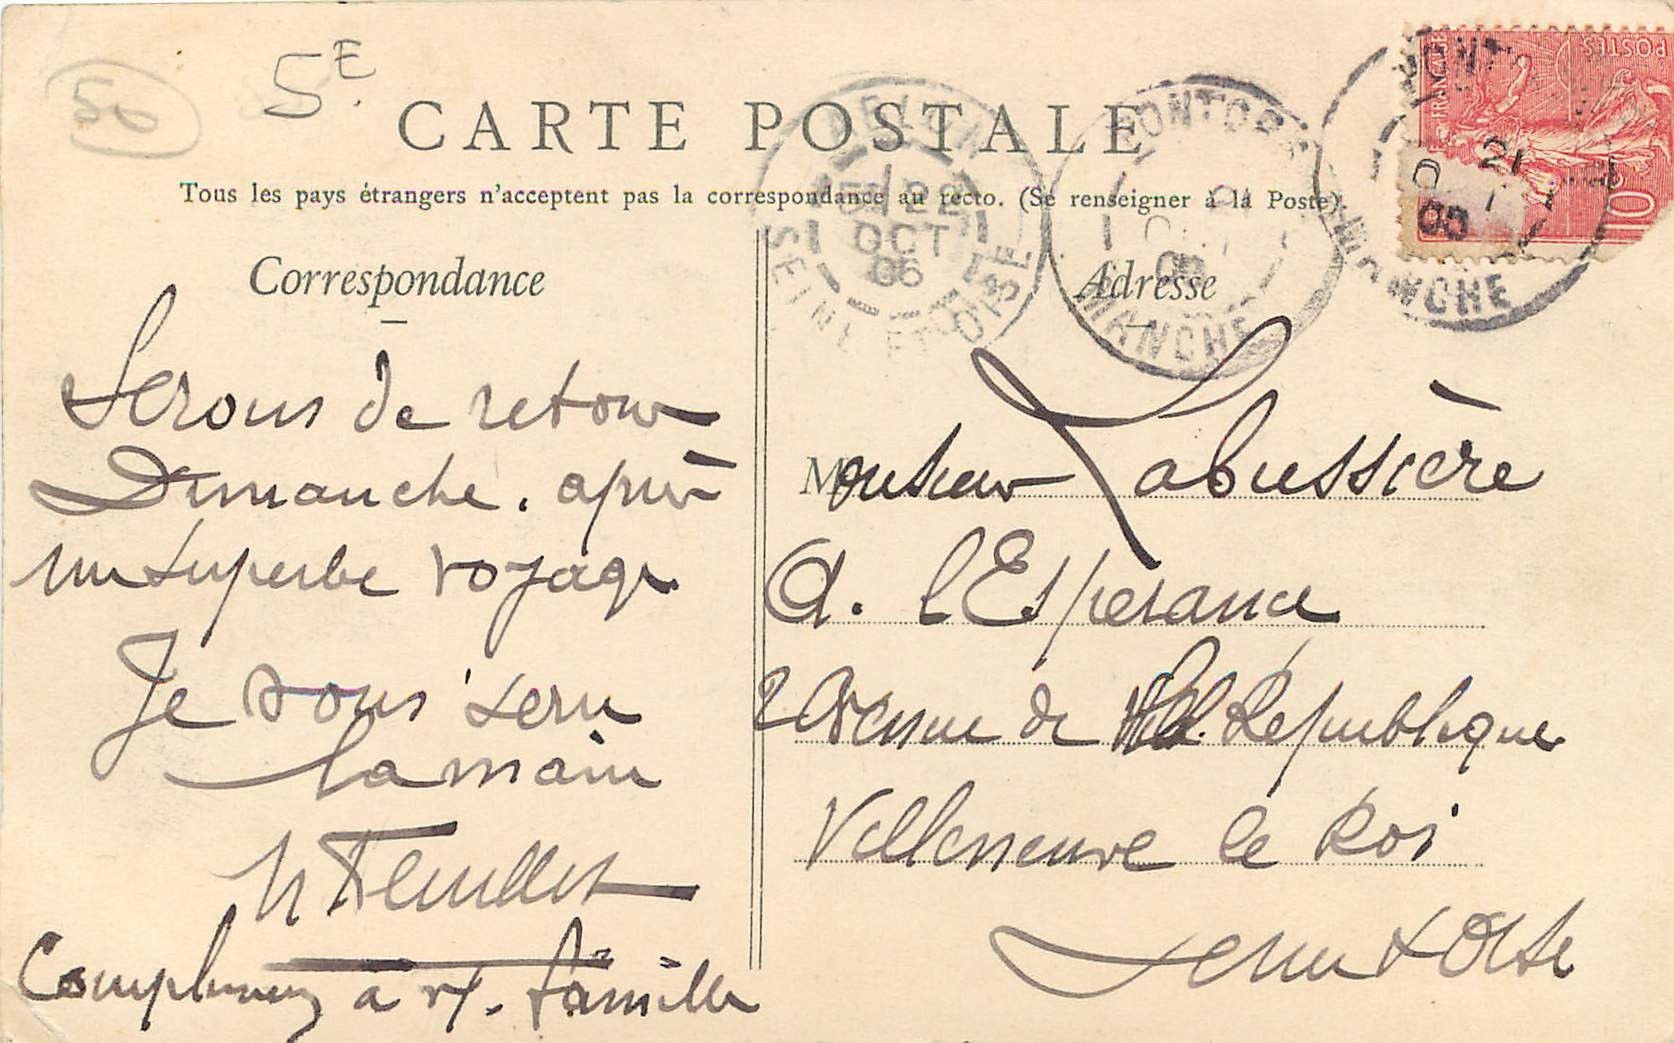 50
5E.
CARTE POSTALE
Tous les pays étrangers n'acceptent pas la correspondance au recto. (Se renseigner à la Poste).
Correspondance
Serons de retour
Dimanche. après
un superbe voyage
Je vous serre
la main
Feuillet
Compliments à vx. famille
Adresse
Monsieur Labussière
A. l'Espérance
2 Avenue de la République
Villeneuve le Roi
Seine et Oise
22
OCT
05
SEINE ET OISE
PONTORS
MANCHE
PONT
21
05
MANCHE
POSTES
FRANÇAISE
10